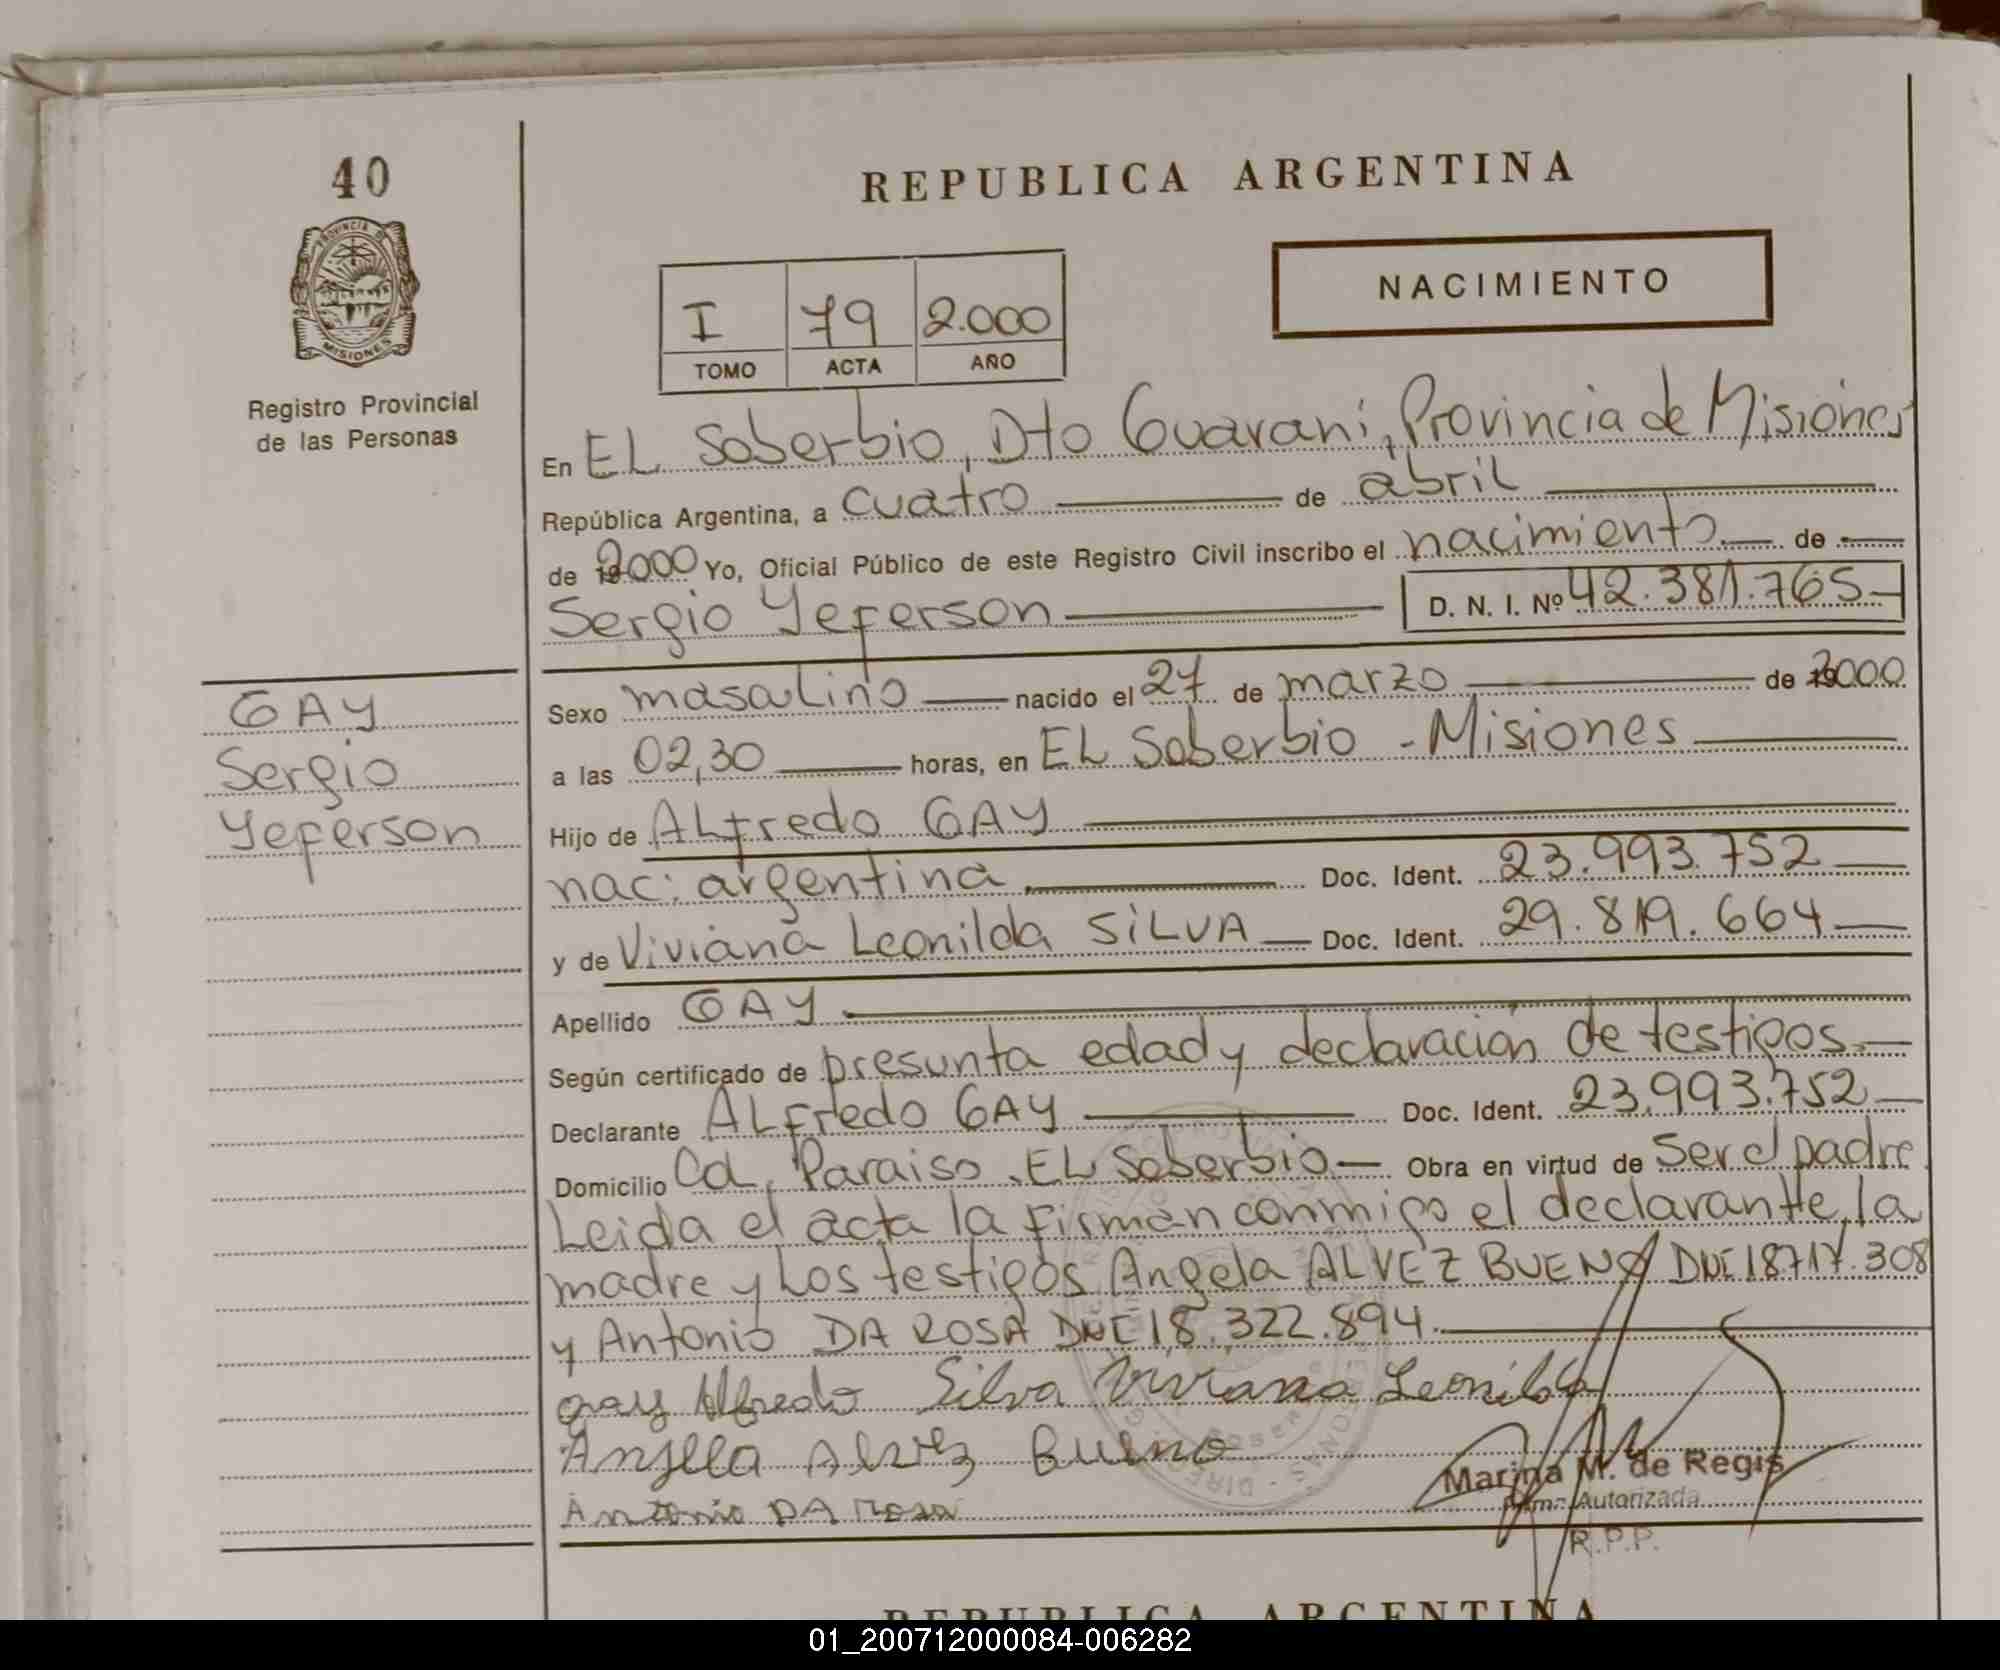 40
PROVINCIA DE
MISIONES
Registro Provincial
de las Personas
REPUBLICA ARGENTINA
NACIMIENTO
I 79 2.000
TOMO ACTA AÑO
En EL Soberbio, Dto Guarani, Provincia de Misiones
República Argentina, a cuatro de abril
de 2000 Yo, Oficial Público de este Registro Civil inscribo el nacimiento de
Sergio Yeferson D. N. I. Nº 42.381.765
GAY
Sergio
Yeferson
Sexo masculino nacido el 27 de marzo de 2000
a las 02,30 horas, en EL Soberbio - Misiones
Hijo de ALfredo GAY
nac: argentina Doc. Ident. 23.993.752
y de Viviana Leonilda SILVA Doc. Ident. 29.819.664
Apellido GAY
Según certificado de presunta edad y declaración de testigos
Declarante ALfredo GAY Doc. Ident. 23.993.752
Domicilio Col. Paraiso, EL Soberbio Obra en virtud de Ser el padre
Leida el acta la firman conmigo el declarante, la
madre y Los testigos Angela ALVEZ BUENO DNI 18717.308
y Antonio DA ROSA DNI 18.322.894
gay Alfredo Silva Viviana Leonilda
Angela Alvez Bueno
Antonio DA Rosa
Marina M. de Regis
Firma Autorizada
R.P.P.
REPUBLICA ARGENTINA
01_200712000084-006282